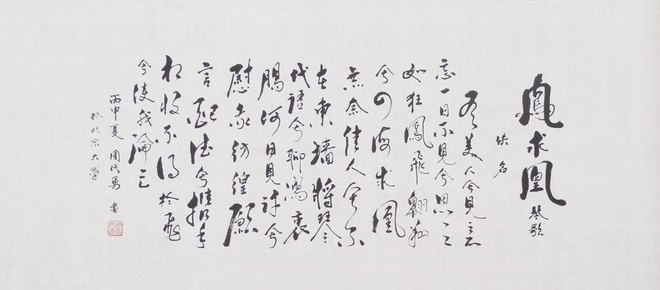 鳳求凰 琴歌
佚名
有美人兮見之不
忘一日不見兮思之
如狂鳳飛翱翔
兮四海求凰
無奈佳人兮不
在東墻將琴
代語兮聊寫衷
腸何日見許兮
慰我彷徨願
言配德兮攜手
相將不得於飛
兮使我淪亡
丙申夏 書
於北京大學